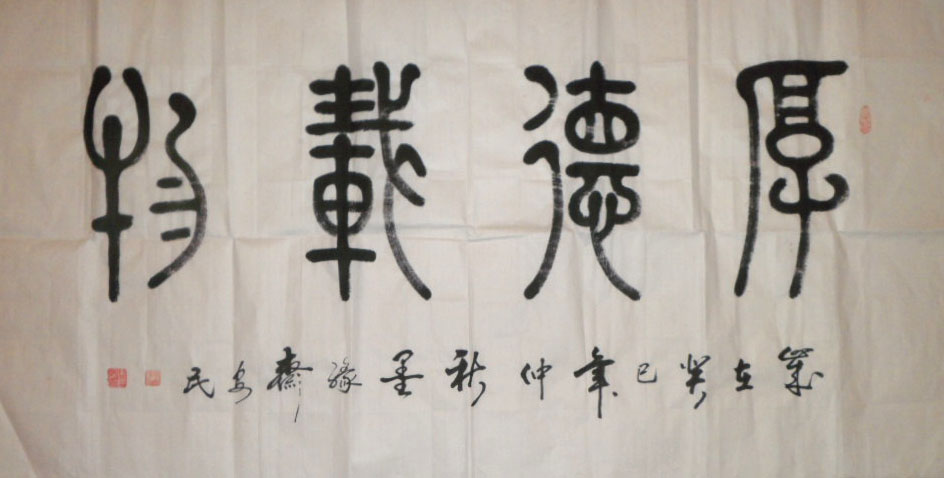 厚德載物
歲在癸巳年仲秋墨緣齋安民